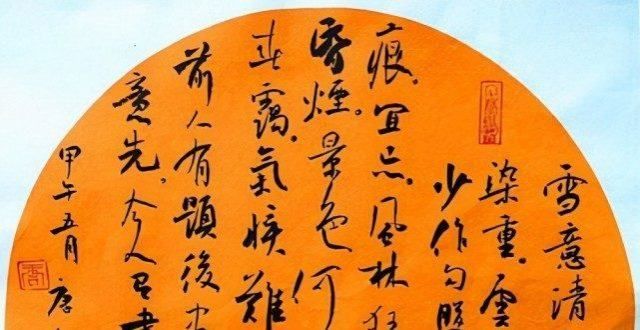 雪意清
染重。雲
少作勾
痕。宜忘。風林
昏煙。景色何
靄。氣候難
前人有題後
意先。今人
甲午五月 唐